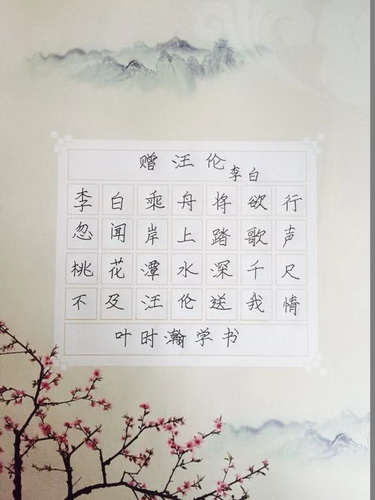 赠汪伦
李白
李白乘舟将欲行
忽闻岸上踏歌声
桃花潭水深千尺
不及汪伦送我情
叶时瀚学书